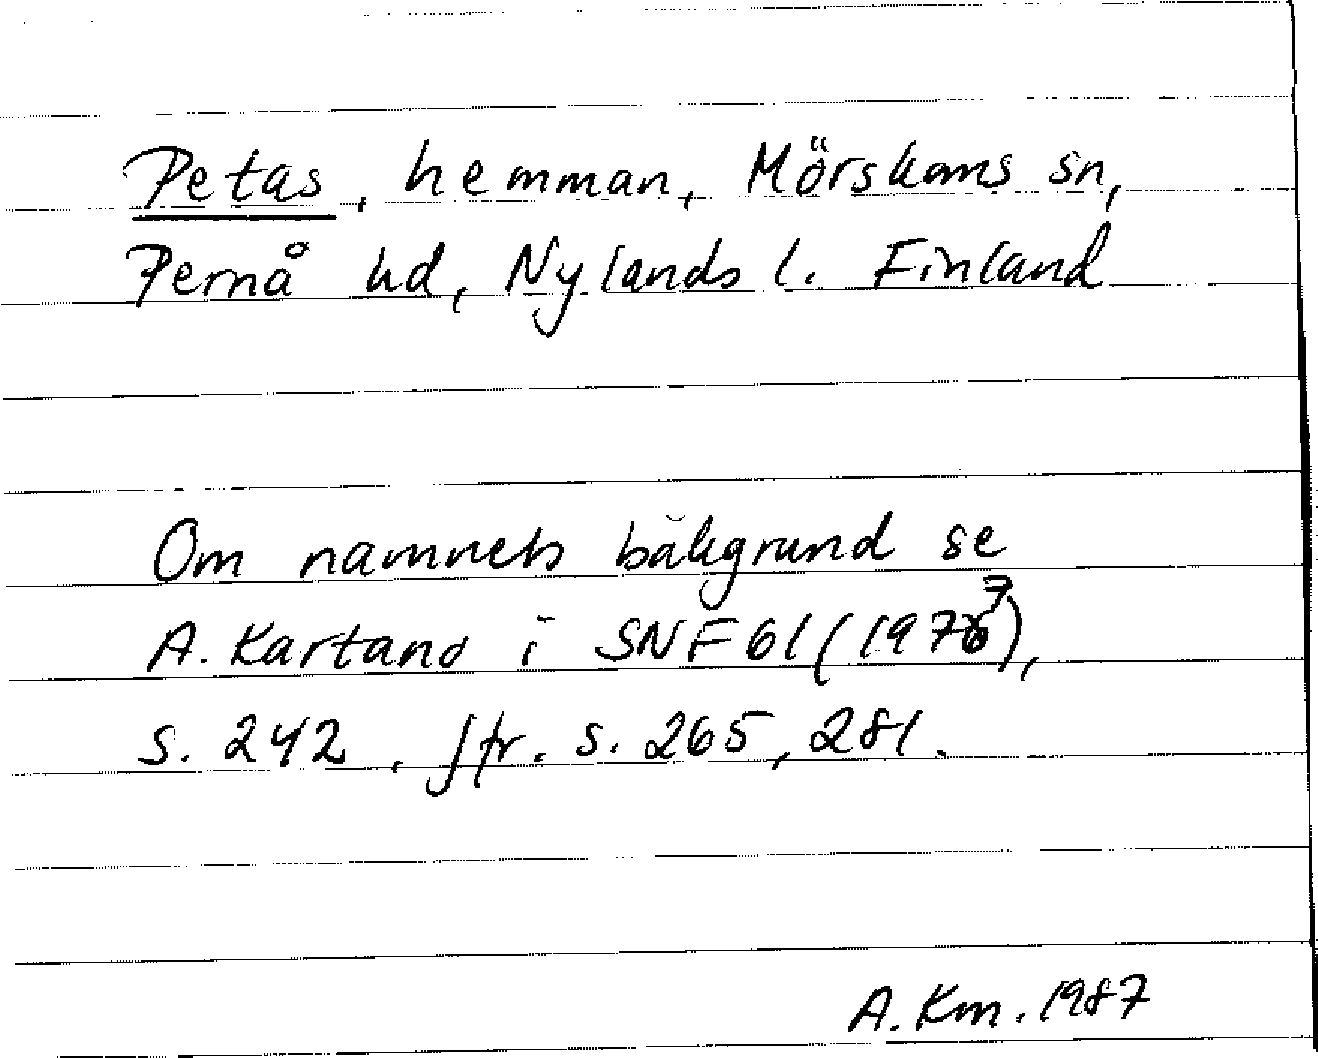 Petas, hemman, Mörskoms sn,
Pernå hd, Nylands l. Finland
Om namnets bakgrund se
A. Kartano i SNF 61 (1973),
s. 242, jfr. s. 265, 281.
A. Km. 1987